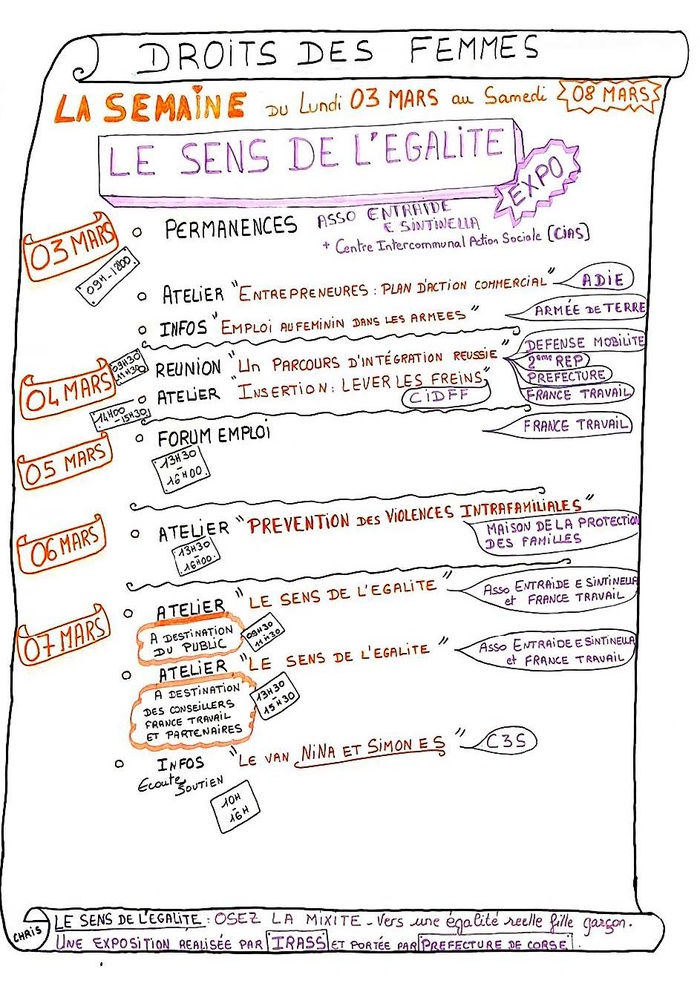 DROITS DES FEMMES
LA SEMAINE DU Lundi 03 MARS au Samedi 08 MARS
LE SENS DE L'EGALITE
EXPO
03 MARS
09H-12H00
PERMANENCES ASSO ENTRAIDE
E SINTINELLA
+ Centre Intercommunal Action Sociale (CIAS)
ATELIER "ENTREPRENEURES : PLAN D'ACTION COMMERCIAL" ADIE
INFOS "EMPLOI AU FEMININ DANS LES ARMEES" ARMÉE DE TERRE
04 MARS
09H30
11H30
REUNION "UN PARCOURS D'INTÉGRATION REUSSIE"
DEFENSE MOBILITE
2ème REP
PREFECTURE
FRANCE TRAVAIL
14H00
-15H30
ATELIER "INSERTION : LEVER LES FREINS"
CIDFF
05 MARS
FORUM EMPLOI FRANCE TRAVAIL
13H30
-
16H00
06 MARS
ATELIER "PREVENTION DES VIOLENCES INTRAFAMILIALES"
13H30
16H00.
MAISON DE LA PROTECTION
DES FAMILLES
07 MARS
ATELIER "LE SENS DE L'EGALITE"
Asso ENTRAIDE E SINTINELLA
et FRANCE TRAVAIL
A DESTINATION
DU PUBLIC
09H30
11H30
ATELIER "LE SENS DE L'EGALITE"
Asso ENTRAIDE E SINTINELLA
et FRANCE TRAVAIL
A DESTINATION
DES CONSEILLERS
FRANCE TRAVAIL
ET PARTENAIRES
13H30
15H30
INFOS "LE VAN NINA ET SIMON ES" C3S
Ecoute
SOUTIEN
10H
-
16H
CHRIS
LE SENS DE L'EGALITE : OSEZ LA MIXITE - Vers une égalité reelle fille garçon.
UNE EXPOSITION REALISÉE PAR IRASS ET PORTÉE PAR PREFECTURE DE CORSE.